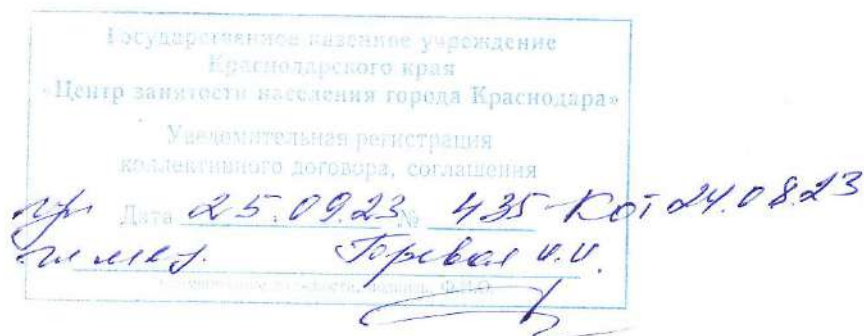 Государственное казенное учреждение
Краснодарского края
«Центр занятости населения города Краснодара»
Уведомительная регистрация
коллективного договора, соглашения
Дата 25.09.23 № 435-К от 24.08.23
Горевая И.И.
наименование должности, подпись, Ф.И.О.